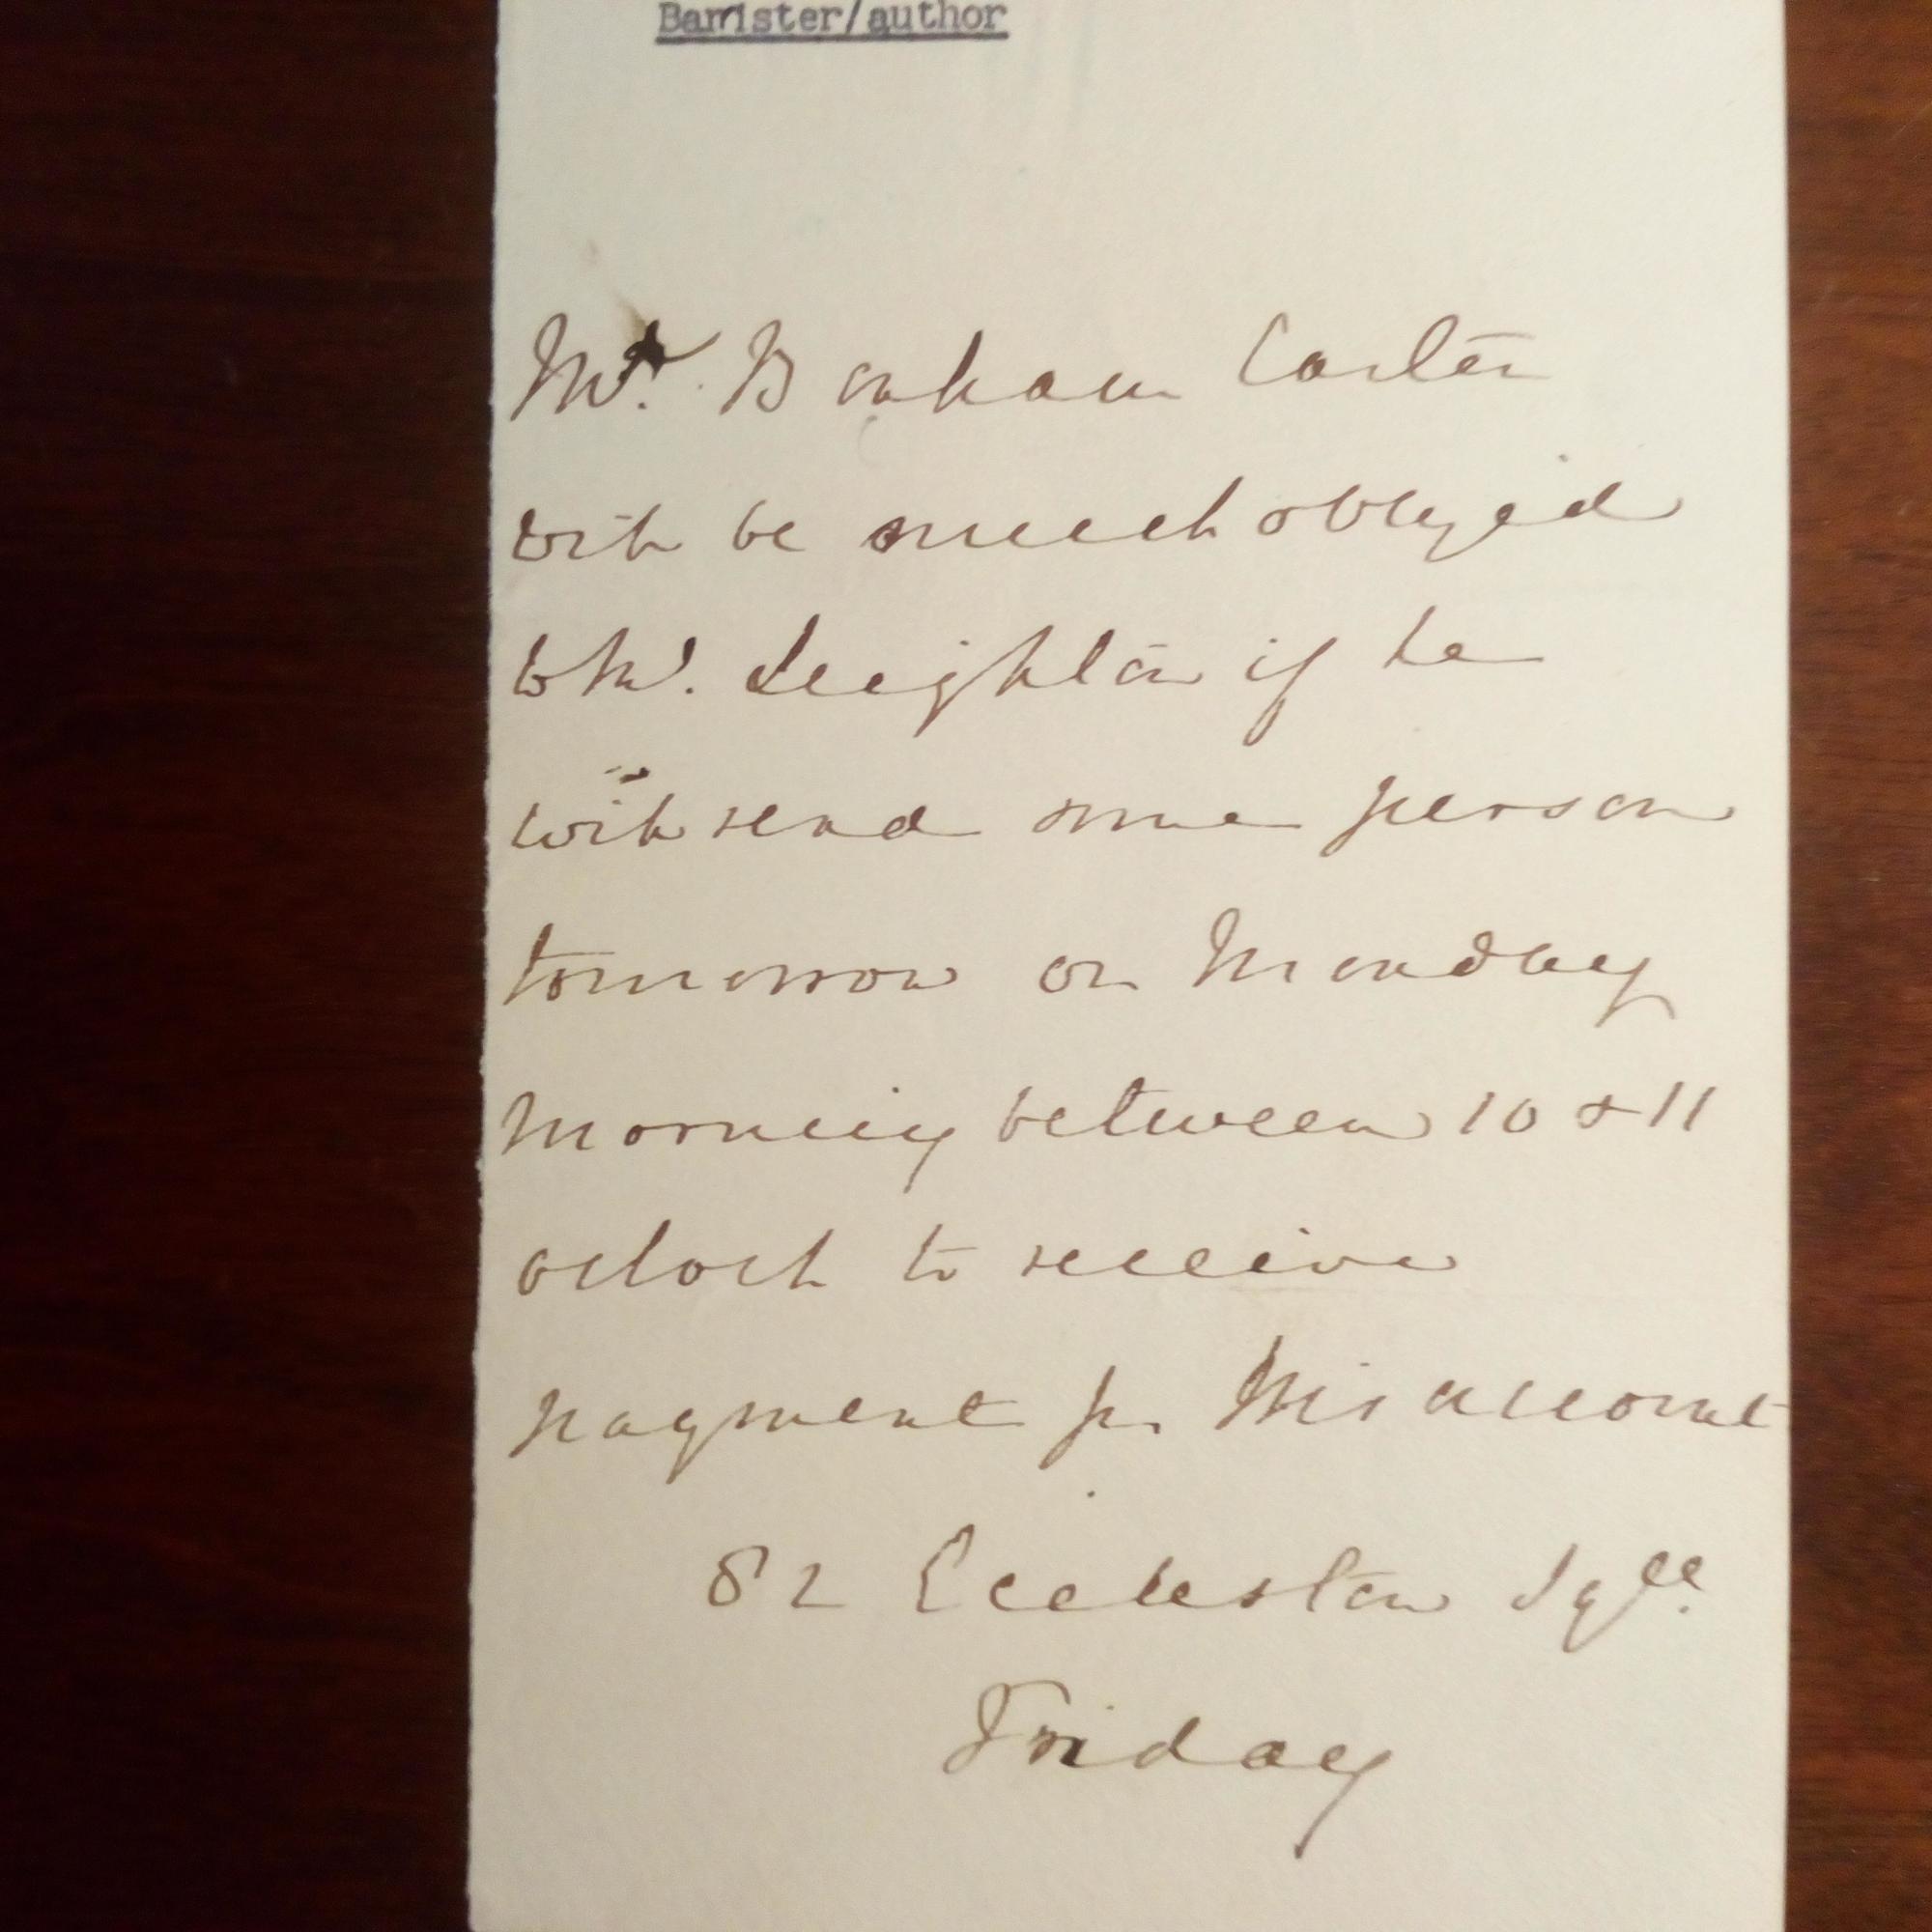 Barrister/author
Mr. Bonham Carter
will be much obliged
to Mr. Leighton if he
will send some person
tomorrow or Monday
morning between 10 & 11
oclock to receive
payment for his account
82 Eccleston Sqre.
Friday